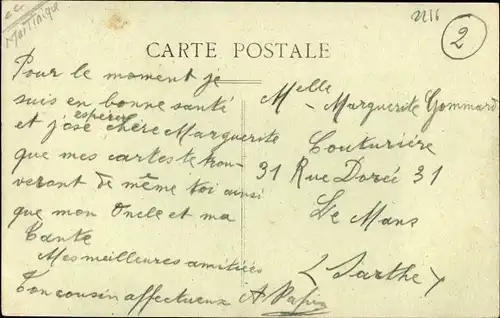 Martinique
2216
2
CARTE POSTALE
Pour le moment je
suis en bonne santé
et j'ose espérer chère Marguerite
que mes cartes te trou-
veront de même toi ainsi
que mon Oncle et ma
Tante
Mes meilleures amitiées
Ton cousin affectueux A
Melle Marguerite Gommard
Couturière
31 Rue Dorée 31
Le Mans
(Sarthe)